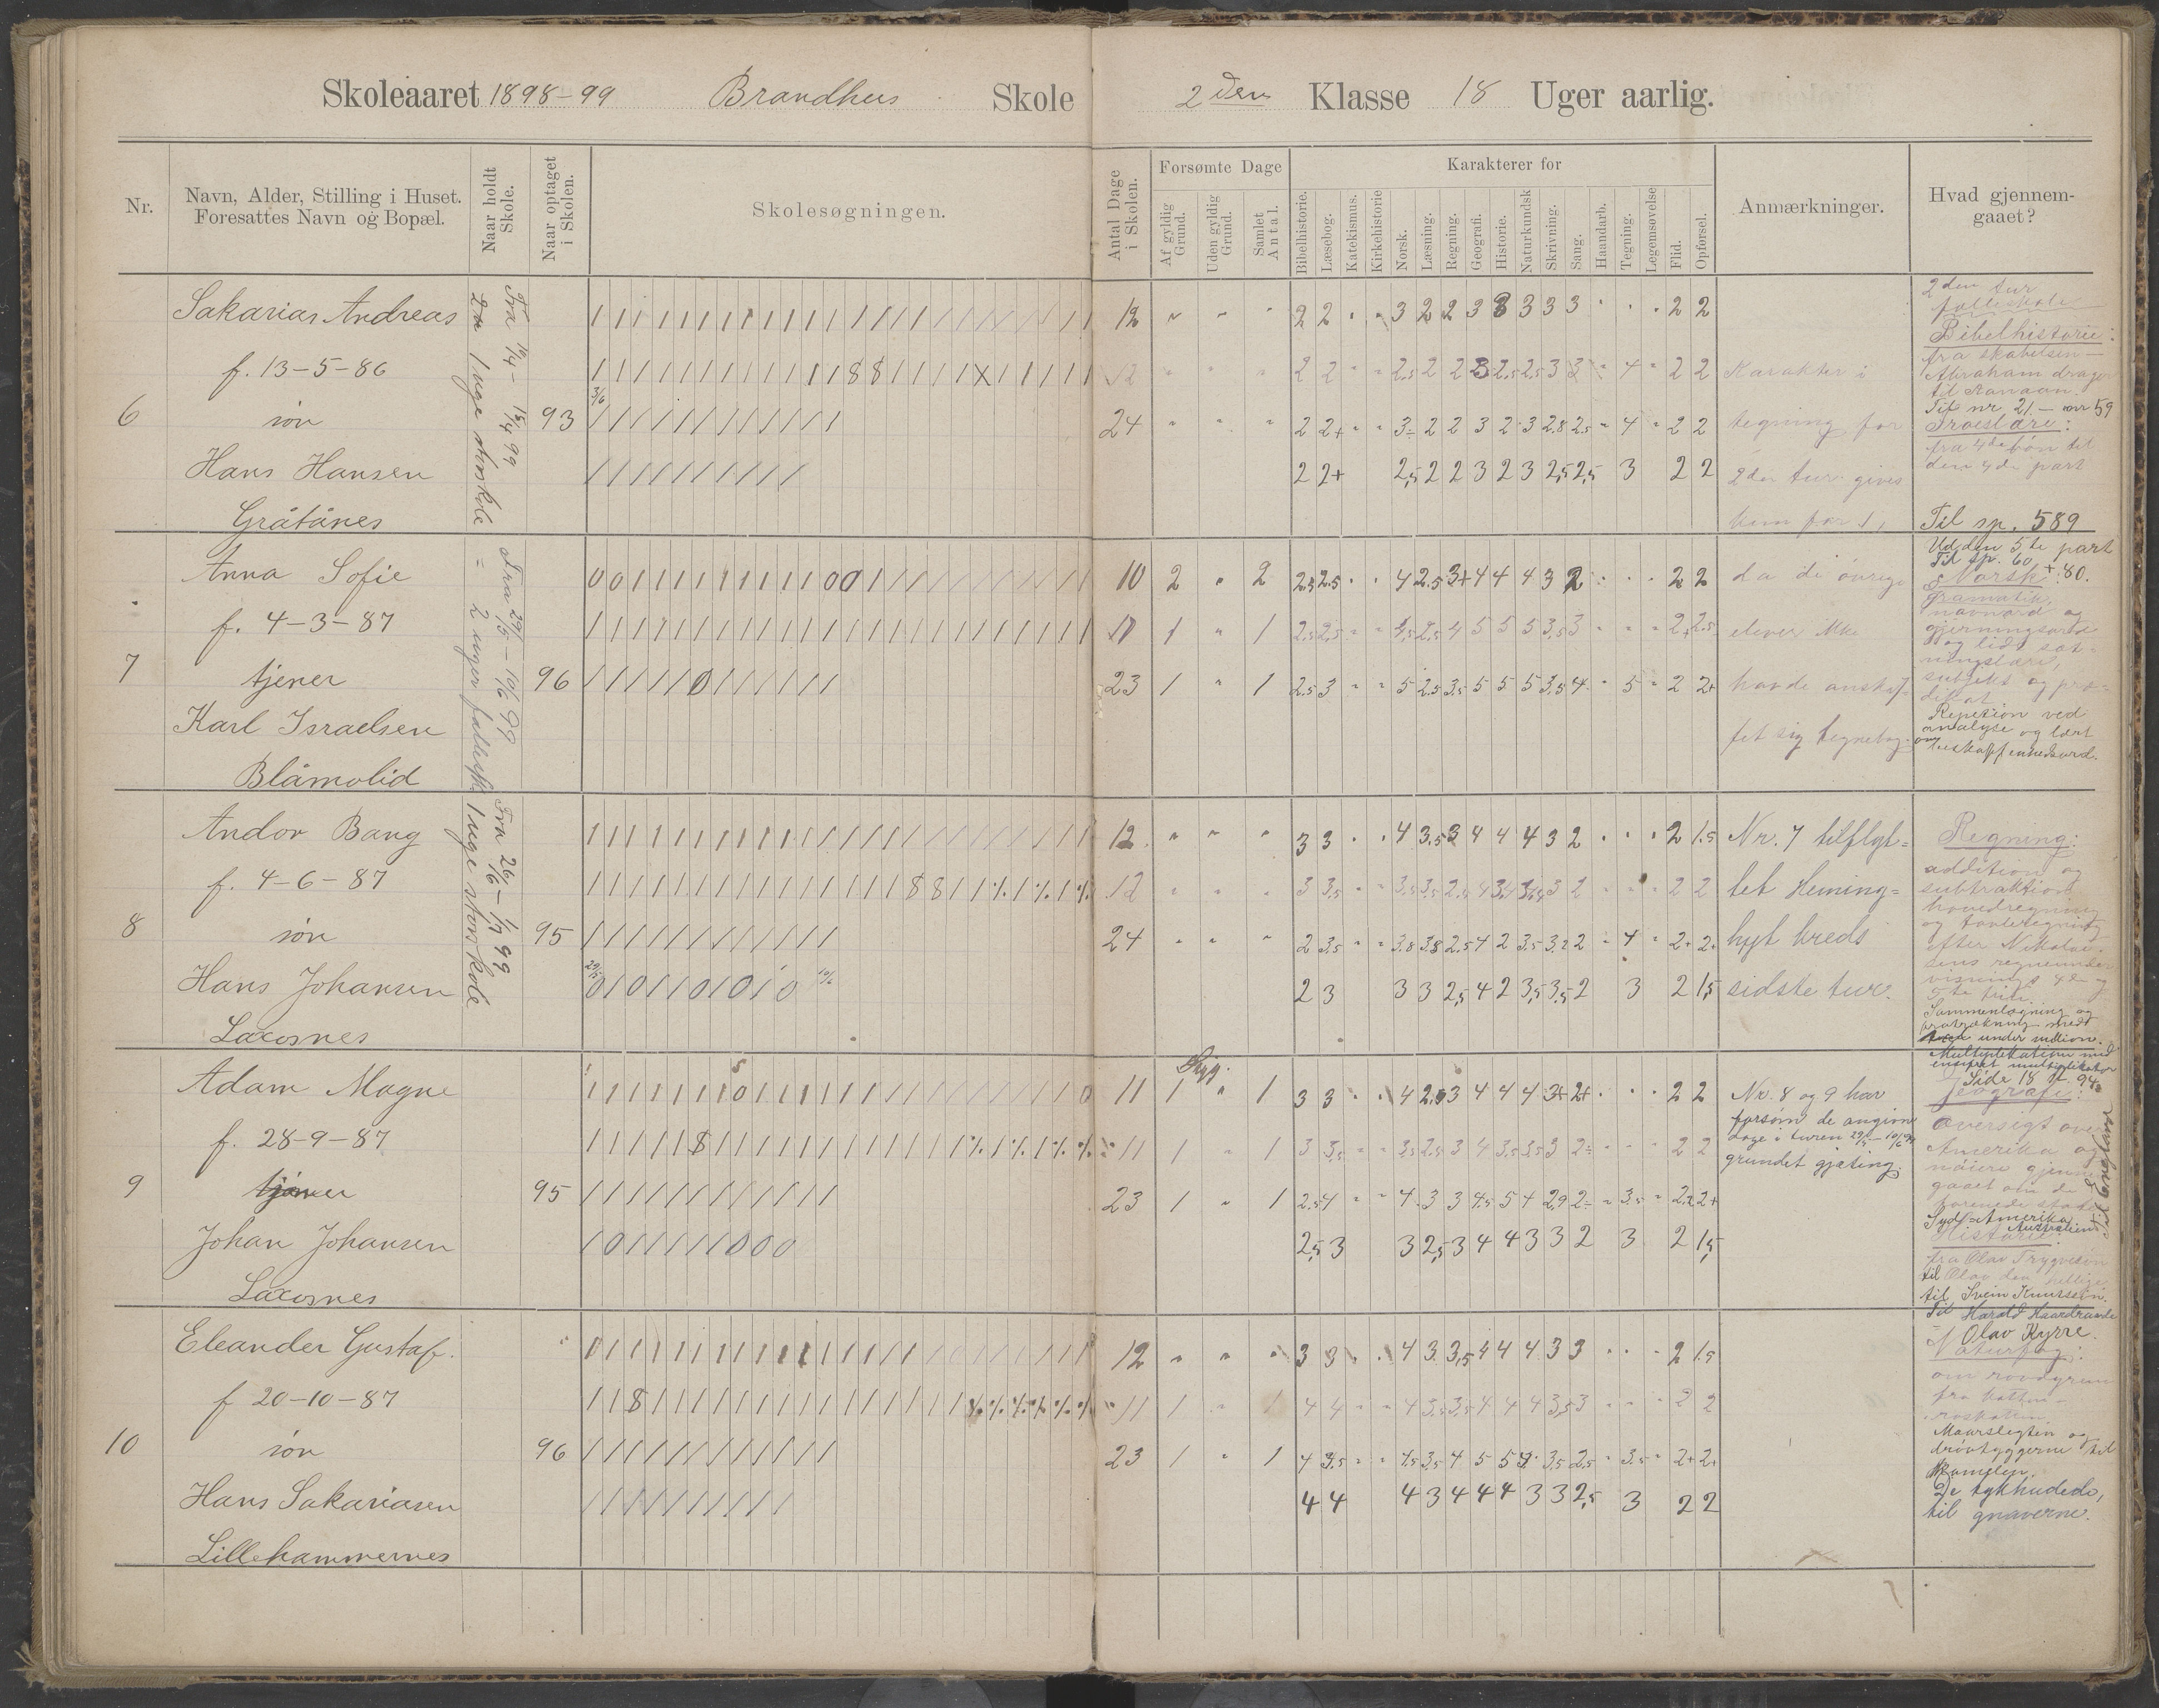 Skoleaaret 1898-99 Brandhus Skole
2den Klasse 18 Uger aarlig.
Nr.
Navn, Alder, Stilling i Huset.
Foresattes Navn og Bopæl.
Naar holdt
Skole.
Naar optaget
i Skolen.
Skolesøgningen.
Antal Dage
i Skolen.
Forsømte Dage
Af gyldig
Grund.
Uden gyldig
Grund.
Samlet
Antal.
Karakterer for
Bibelhistorie.
Læsebog.
Katekismus.
Kirkehistorie
Norsk.
Læsning.
Regning.
Geografi.
Historie.
Naturkundsk
Skrivning.
Sang.
Haandarb.
Tegning.
Legemsøvelse
Flid.
Opførsel.
Anmærkninger.
Hvad gjennem-
gaaet?
Sakarias Andreas
f. 13-5-86
6 søn 93
Hans Hansen
Gråtånes
12 " " " 2 2 3 2 2 3 3 3 3 3 2 2
12 2 2 2.5 2 2 3 2.5 2.5 3 3 4 2 2
24 " " " 2 2+ 3÷ 2 2 3 2 3 2.8 2.5 4 2 2
2 2+ 2,5 2 2 3 2 3 2,5 2,5 3 2 2
Karakter i
tegning for
2den tur gives
kun for 1,
2den tur
Bibelhistorie:
fra skabelsen
Abraham drager
til Kanaan.
Til nr. 21 - nr 59
Troeslære:
fra 4de bøn til
den 4de part
Til sp. 589
Anna Sofie
f. 4-3-87
7 tjener 96
Karl Israelsen
Blåmolid
10 2 " 2 2.5 2.5 4 2.5 3+ 4 4 4 3 2 2 2
11 1 " 1 2.5 2.5 4.5 2.5 4 5 5 5 3.5 3 2+ 2.5
23 1 " 1 2.5 3 5 2.5 3.5 5 5 5 3.5 4 5 2 2+
da de øvrige
elever ikke
havde anskaf=
fet sig tegnebog.
Ud den 5te part
Til sp. 60 + 80.
Norsk
gramatik
navnord og
gjerningsord
og lidt sæt=
ningslære,
subjekt og præ=
dikat.
Repetion ved
analyse og lært
om
Andor Bang
f. 4-6-87
8 søn 95
Hans Johansen
Laxosnes
12 " " " 3 3 4 3.5 3 4 4 4 3 2 2 1.5
12 3 3.5 2 2
24 " " " 2 3.5 3.8 3.8 2.5 4 2 3.5 3.2 2 4 2+ 2+
2 3 3 3 2,5 4 2 3,5 3,5 2 3 2 1,5
Nr. 7 tilflyt=
tet Heming=
hyt kreds
sidste tur.
Regning:
addition og
subtraktion
hovedregning
og tavleregning
efter Nikolai=
sens regneunder
visnings 4de og
5te trin.
Sammenlægning og
fratrækning med
under million.
Multiplikation med
ensifret multiplikator
Side 18 st. 94
Adam Magne
f. 28-9-87
9 tjener 95
Johan Johansen
Laxosnes
Syg.
11 1 " 1 3 3 4 2.5 3 4 4 4 3+ 2+ 2 2
11 1 " 1 3 3,5 3.5 2.5 3 4 3.5 3.5 3 2÷ 2 2
23 1 " 1 2.5 4 4 3 3 4.5 5 4 2.9 2÷ 3.5 2.2 2+
2,5 3 3 2,5 3 4 4 3 3 2 3 2 1,5
Nr. 8 og 9 har
forsømt de angivne
dage i turen 29/5 - 10/6 99
grundet gjæting.
Jeografi:
Oversigt over
Amerika og
nøiere gjennem=
gaaet om de
Forenede stater
Syd-Amerika
Australien
til England
Historie:
fra Olav Trygveson
til Olav den hellige.
til Svein Knutsson.
Til Harald Haardraade
Olav Kyrre.
Eleander Gustaf.
f 20-10-87
10 søn 96
Hans Sakariasen
Lillehammernes
12 " " " 3 3 4 3 3,5 4 4 4 3 3 2 1.5
11 1 " 1 4 4 4 3.5 3.5 4 4 4 3,5 3 2 2
23 1 " 1 4 3.5 4.5 3.5 4 5 5 4 3.5 2.5 3.5 2+ 2+
4 4 4 3 4 4 4 3 3 2,5 3 2 2
Naturfag:
om rovdyrene
fra katten
Maarslegten og
drøvtyggerne til
kamelen.
De tykhudede,
til gnaverne.
Fra 10/4 - 15/4 99
1 uge storskole
Fra 29/5 - 10/6 99
= 2 uger fællessk.
Fra 26/6 - 1/7 99
1 uge storskole